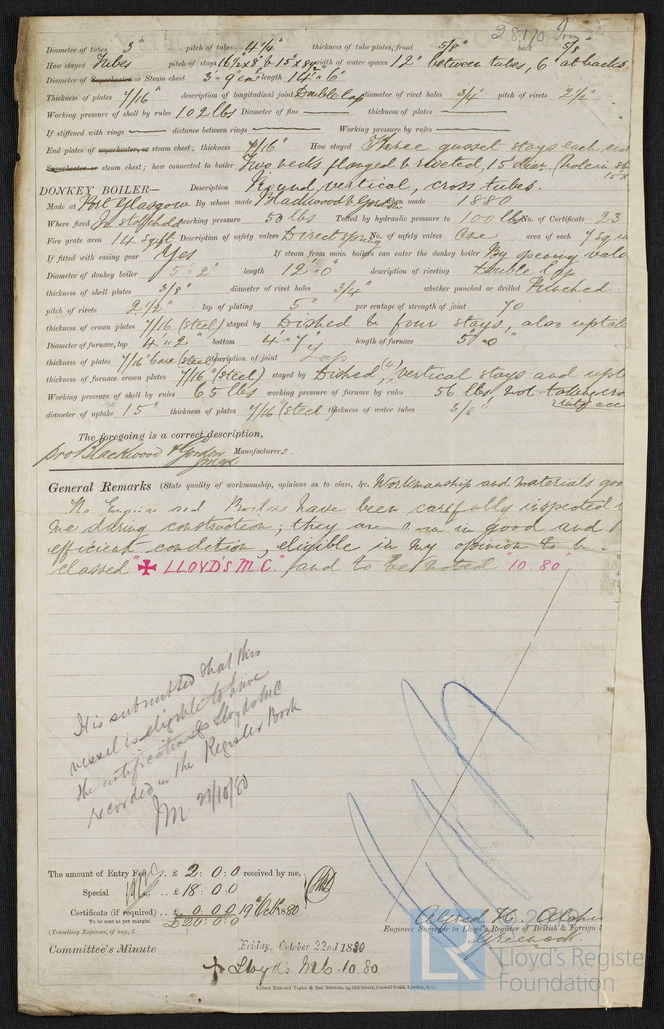 28170 Iron
Diameter of tubes 3" pitch of tubes 4 1/4" thickness of tube plates, front 5/8" back 5/8"
How stayed Tubes pitch of stays 16 1/2 x 8 1/2 & 15 x 8 1/2 width of water spaces 12" between tubes, 6" at backs
Diameter of Superheater or Steam chest 3' 9" length 14' 6"
Thickness of plates 7/16" description of longitudinal joint Double lap diameter of rivet holes 3/4" pitch of rivets 2 1/2"
Working pressure of shell by rules 102 lbs Diameter of flue — thickness of plates —
If stiffened with rings — distance between rings — Working pressure by rules —
End plates of superheater, or steam chest; thickness 7/16" How stayed Three gusset stays each
Superheater or steam chest; how connected to boiler Two necks flanged & riveted, 15" diar. (hole in
DONKEY BOILER— Description Round, vertical, cross tubes.
Made at Port Glasgow By whom made Blackwood & Gordon when made 1880
Where fixed In stokehold working pressure 50 lbs Tested by hydraulic pressure to 100 lbs No. of Certificate 23
Fire grate area 14.5 q ft Description of safety valves Direct spring No. of safety valves One area of each 7 sq in
If fitted with easing gear Yes If steam from main boilers can enter the donkey boiler By opening valve
Diameter of donkey boiler 5' 2" length 12' 0" description of riveting Double lap
thickness of shell plates 3/8" diameter of rivet holes 3/4" whether punched or drilled Punched
pitch of rivets 2 1/2" lap of plating 5" per centage of strength of joint 70
thickness of crown plates 7/16 (steel) stayed by Dished & four stays, also uptake
Diameter of furnace, top 4' 2" bottom 4' 7 1/4 length of furnace 5' 0"
thickness of plates 7/16" bare (steel) description of joint Lap
thickness of furnace crown plates 7/16" (steel) stayed by Dished, (4) vertical stays and upt
Working pressure of shell by rules 65 lbs working pressure of furnace by rules 56 lbs, not taking
diameter of uptake 15" thickness of plates 7/16" (steel) thickness of water tubes 3/8" into acc
The foregoing is a correct description,
pro Blackwood & Gordon Manufacturers.
General Remarks (State quality of workmanship, opinions as to class, &c. Workmanship and materials goo
The Engines and Boilers have been carefully inspected
me during construction; they are now in good and
efficient condition, eligible in my opinion to be
classed "✠ LLOYDS M.C." and to be noted "10.80"
It is submitted that this
vessel is eligible to have
the notification ✠ Lloyds MC
recorded in the Register Book
JM. 21/10/80
The amount of Entry Fee .. £ 2 : 0 : 0 received by me,
Special .. £ 18 : 0 : 0
Certificate (if required) .. £ 0 . 0 . 0 19th Oct. 1880
To be sent as per margin. £20 : 0 : 0
(Travelling Expenses, if any, £
Alfred H.
Engineer Surveyor to Lloyd's Register of British & Foreign S
Greenock.
Committee's Minute Friday, October 22nd 1880
✠ Lloyd's M.C. 10.80
Lloyd's Register
Foundation